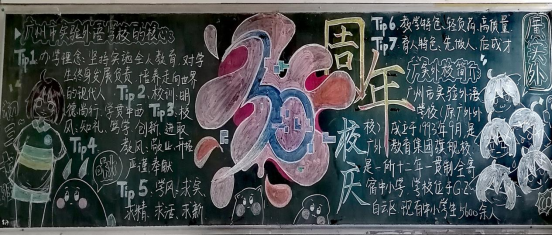 广州市实验外语学校的核心
Tip1 办学理念:坚持实施全人教育,对学
生终身发展负责,培养走向世界
的现代人 Tip2 校训:明
德尚行,学贯中西 Tip3 校
风:知礼 勇学 创新 进取
Tip4 教风:敬业 开拓
严谨 奉献
Tip5 学风:求实
求精 求活 求新
30
周年
校庆
Tip6 教学特色:轻负荷 高质量
Tip7 育人特色:先做人 后成才
广实外校简介
广州市实验外语
学校(原广外外
校)成立于1993年9月,是
广外教育集团旗舰校
是一所十一年一贯制全寄
宿中小学 学校位于G2
白云区 现有中小学生5600余人
广实外